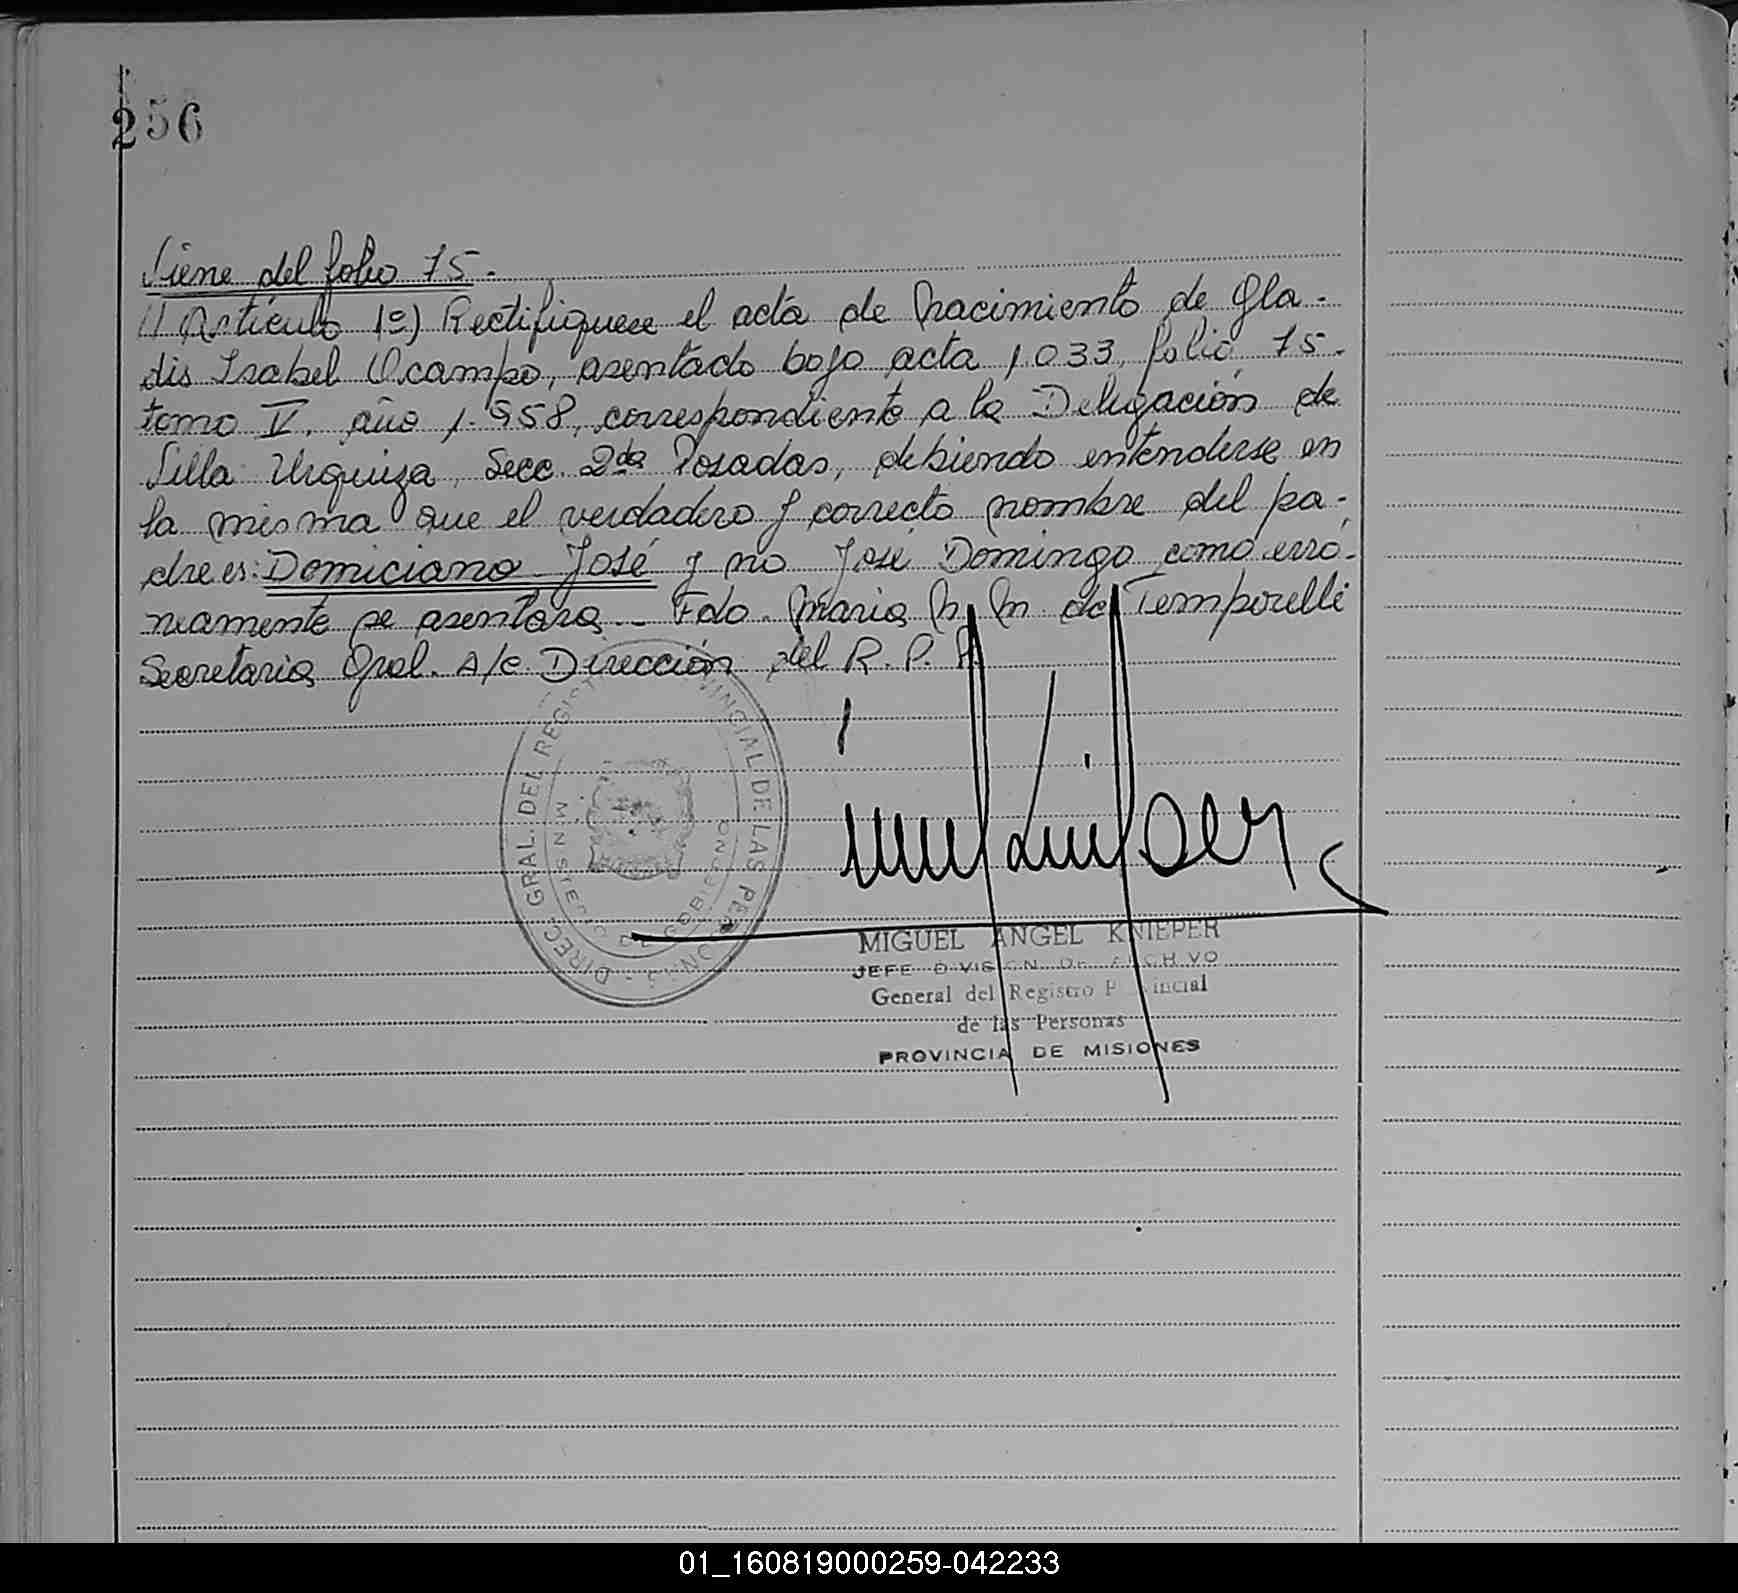 256
Viene del folio 75.
// Artículo 1º) Rectifiquese el acta de Nacimiento de Gla-
dis Isabel Ocampo, asentado bajo acta 1.033, folio 75.
tomo V. año 1.958, correspondiente a la Delegación de
Villa Urquiza, Secc. 2da Posadas, debiendo entenderse en
la misma que el verdadero y correcto nombre del pa-
dre es: Domiciano José y no José Domingo como erro-
neamente se asentara.- Fdo. Maria N. M. de Temporelli
Secretaria Gral. A/C Dirección del R. P. P.
DIREC. GRAL. DEL REGISTRO PROVINCIAL DE LAS PERSONAS
MINISTERIO DE GOBIERNO
MIGUEL ANGEL KNIEPER
JEFE DIVISION DE ARCHIVO
General del Registro Provincial
de las Personas
PROVINCIA DE MISIONES
01_160819000259-042233